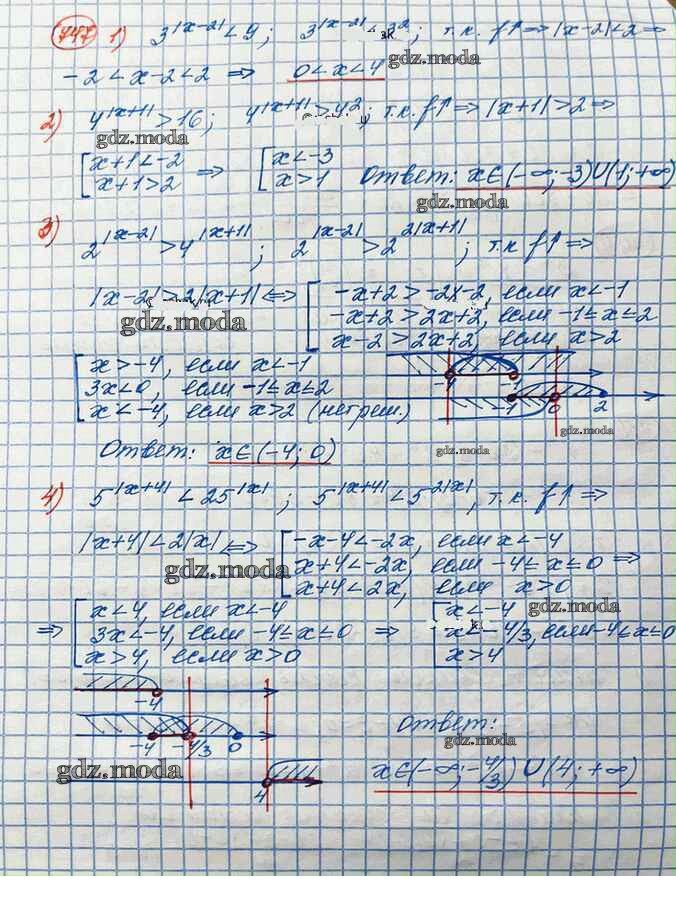 747 1) 3^|x-2| < 9; 3^|x-2| < 3²; т.к. f↑ ⇒ |x-2| < 2 ⇒
-2 < x-2 < 2 ⇒ 0 < x < 4
gdz.moda
2) 4^|x+1| > 16; 4^|x+1| > 4²; т.к. f↑ ⇒ |x+1| > 2 ⇒
gdz.moda
[ x+1 < -2 ⇒ [ x < -3
x+1 > 2 x > 1 Ответ: x∈(-∞; -3)∪(1; +∞)
gdz.moda
3) 2^|x-2| > 4^|x+1|; 2^|x-2| > 2^2|x+1|; т.к f↑ ⇒
|x-2| > 2|x+1| ⇔ [ -x+2 > -2x-2, если x < -1
-x+2 > 2x+2, если -1 ≤ x ≤ 2
x-2 > 2x+2, если x > 2
gdz.moda
[ x > -4, если x < -1
3x < 0, если -1 ≤ x ≤ 2
x < -4, если x > 2 (нет реш.)
-4 -1
-1 0 2
gdz.moda
Ответ: x∈(-4; 0)
gdz.moda
4) 5^|x+4| < 25^|x|; 5^|x+4| < 5^2|x|, т.к. f↑ ⇒
|x+4| < 2|x| ⇔ [ -x-4 < -2x, если x < -4
x+4 < -2x, если -4 ≤ x ≤ 0 ⇒
x+4 < 2x, если x > 0
gdz.moda
⇒ [ x < 4, если x < -4
3x < -4, если -4 ≤ x ≤ 0 ⇒
x > 4, если x > 0
[ x < -4
x < -4/3, если -4 ≤ x ≤ 0
x > 4
gdz.moda
-4
-4 -4/3 0
4
gdz.moda
Ответ:
gdz.moda
x∈(-∞; -4/3)∪(4; +∞)